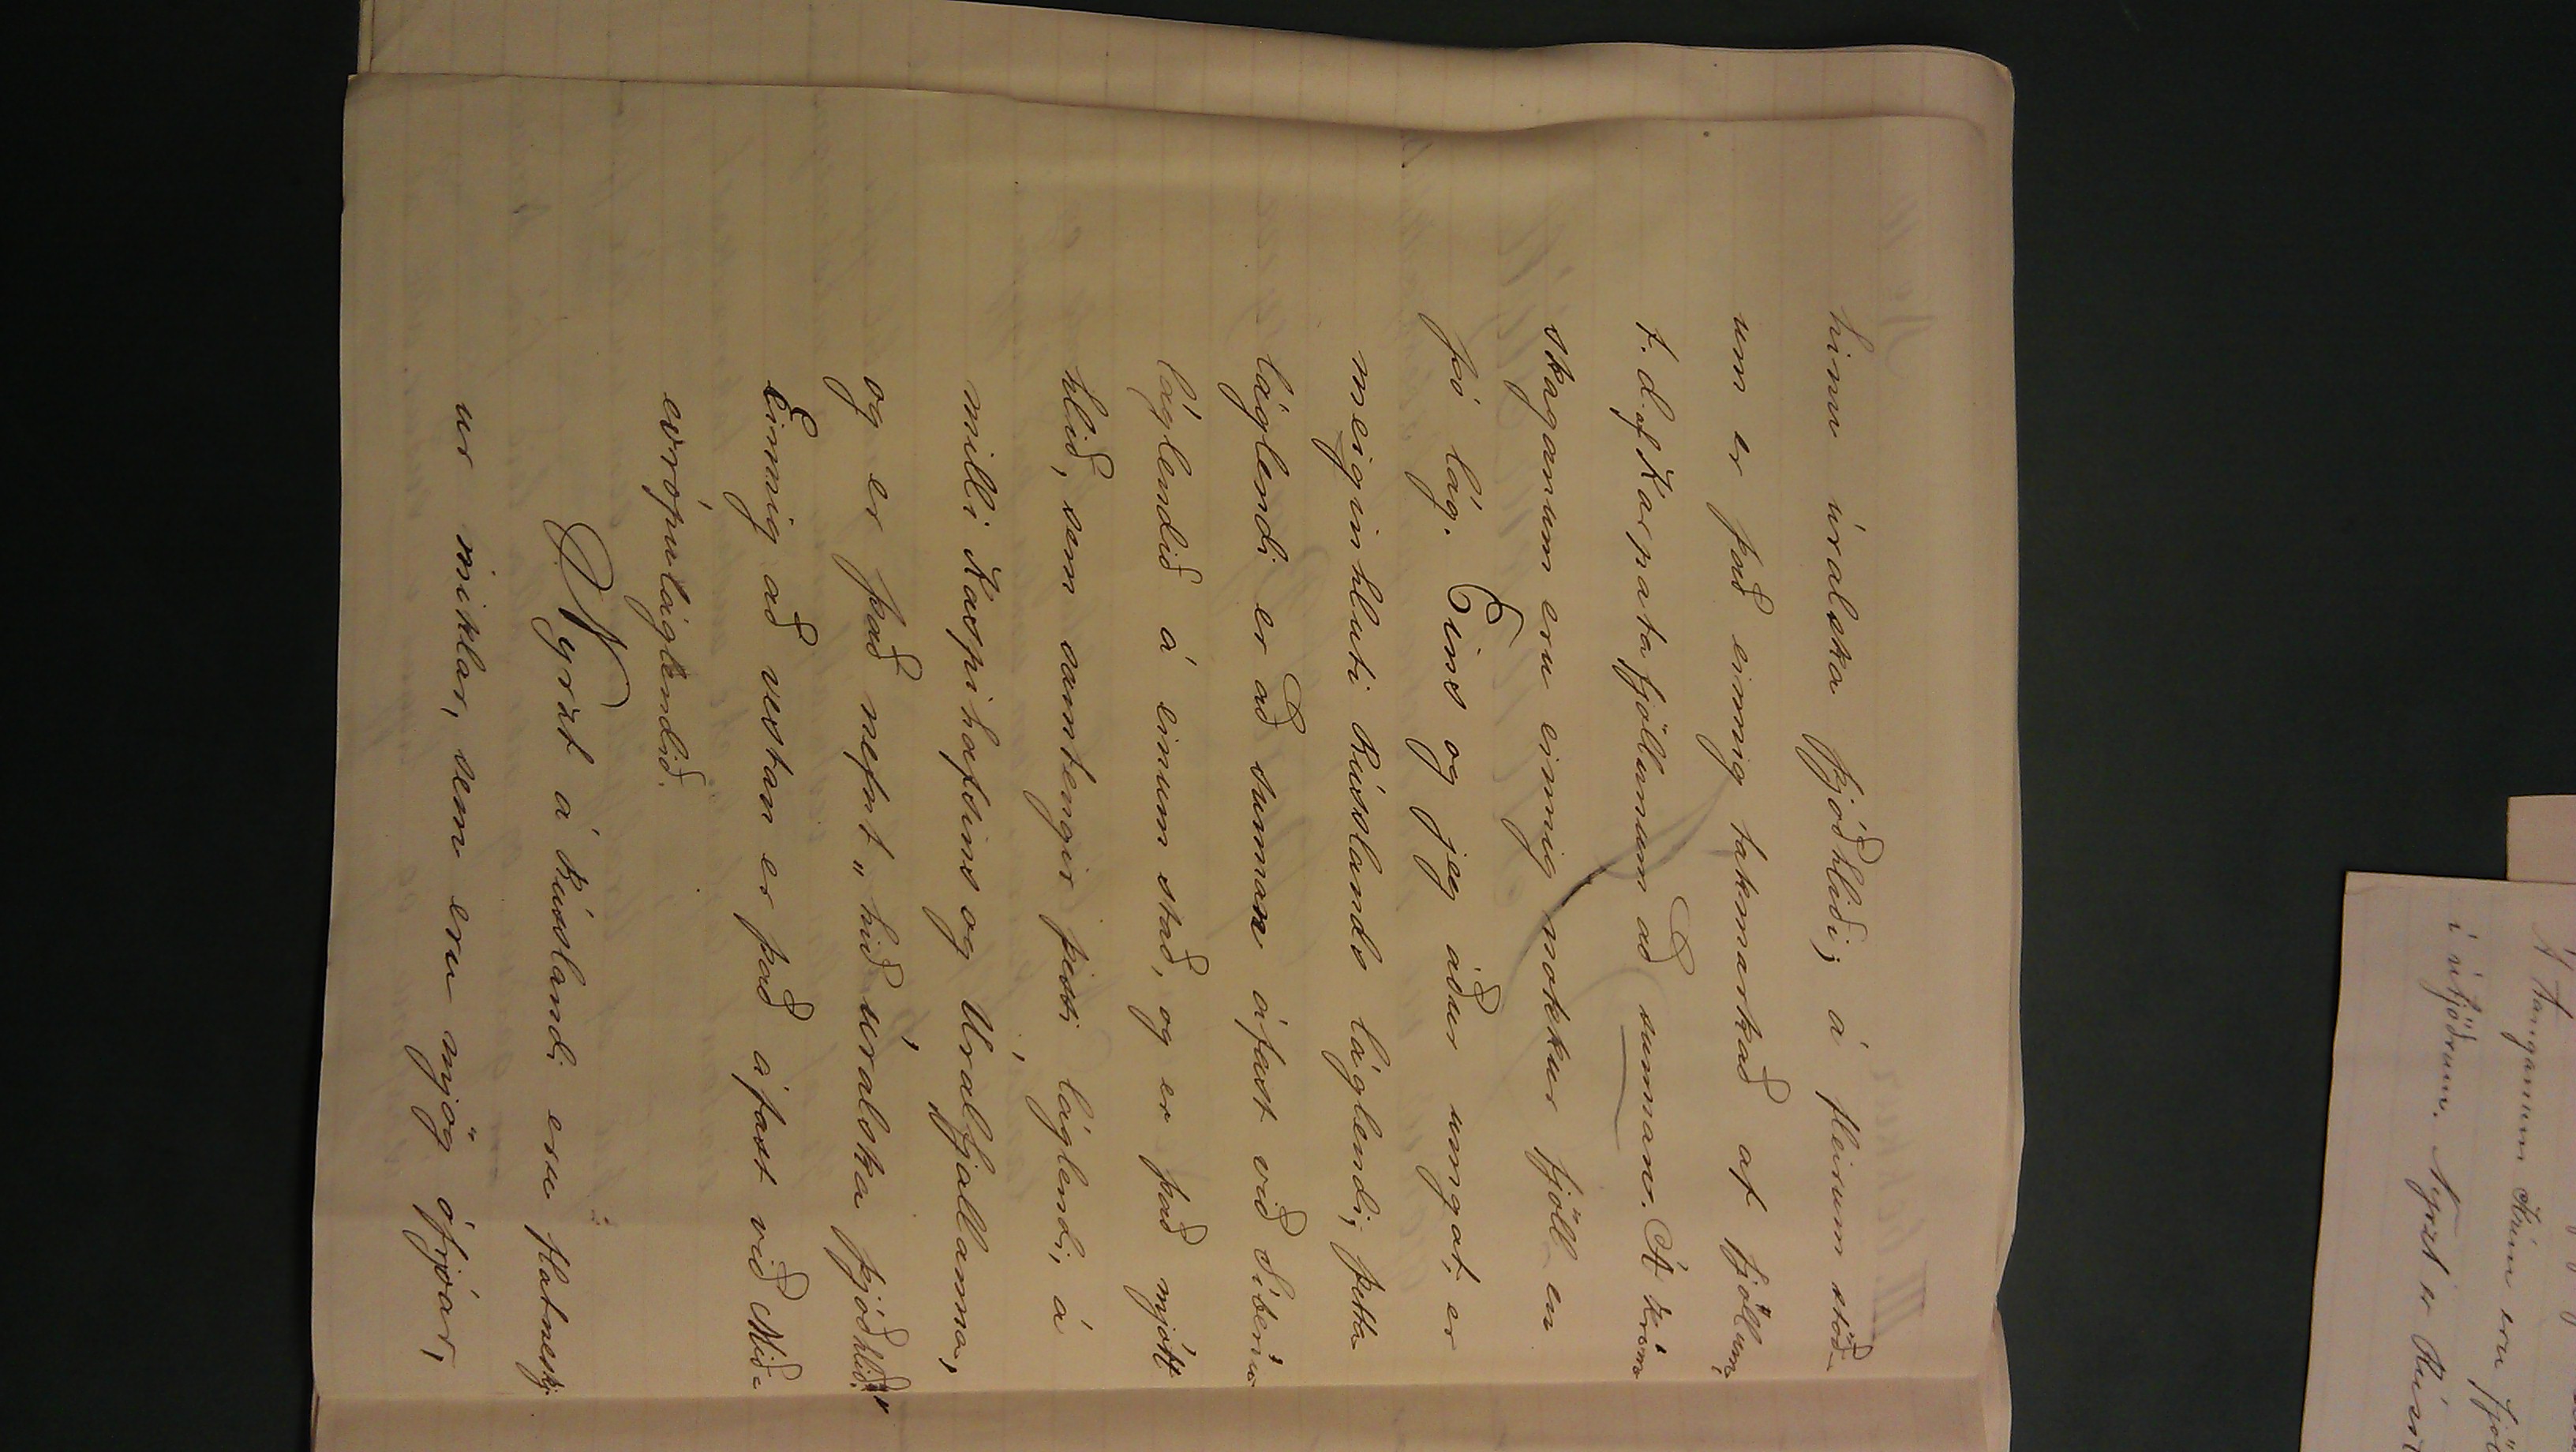 hinu úralska þjóðhliði; á fleirum stöð-
um er það einnig takmarkað af fjöllum,
t.d. af Karpatafjöllunum að sunnan. Á Krím-
skaganum eru einnig nokkur fjöll en
þó lág. Eins og jeg áður umgat, er
meiginhluti Rússlands láglendi; þetta
láglendi er að sunnan áfast við Síberíu-
láglendið á einum stað, og er það mjótt
hlið, sem samtengir þessi láglendi, á
milli Kaspihafsins og Úralfjallanna,
og er það nefnt „hið úralska þjóðhlið."
Einnig að vestan er það áfast við Mið-
evrópuláglendið.
Nyrst á Rússlandi eru flatneskj-
ur miklar, sem eru mjög ófrjóar,
Á tanganum Krím eru fjöl
í útjöðrum. Nyrst er Rúss